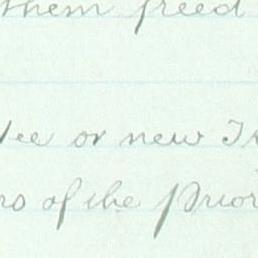 them freed
or new
of the Prior